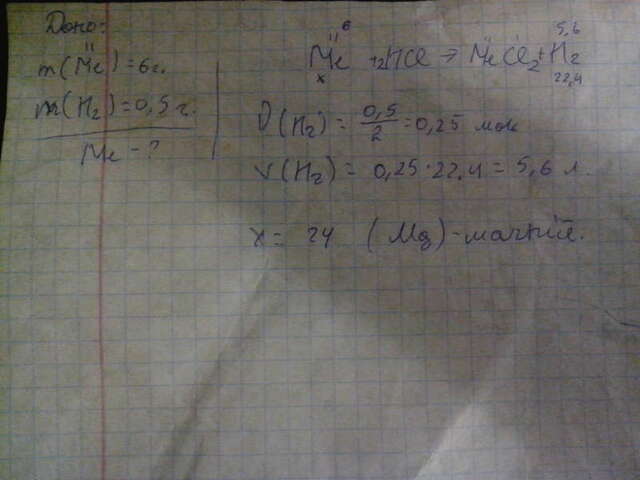 Дано:
m(Me) = 6 г.
m(H₂) = 0,5 г.
Me - ?
6 5,6
II
Me + 2HCl → MeCl₂ + H₂
x 22,4
ν(H₂) = 0,5/2 = 0,25 мол
v(H₂) = 0,25 · 22,4 = 5,6 л.
x = 24 (Mg) - магний.